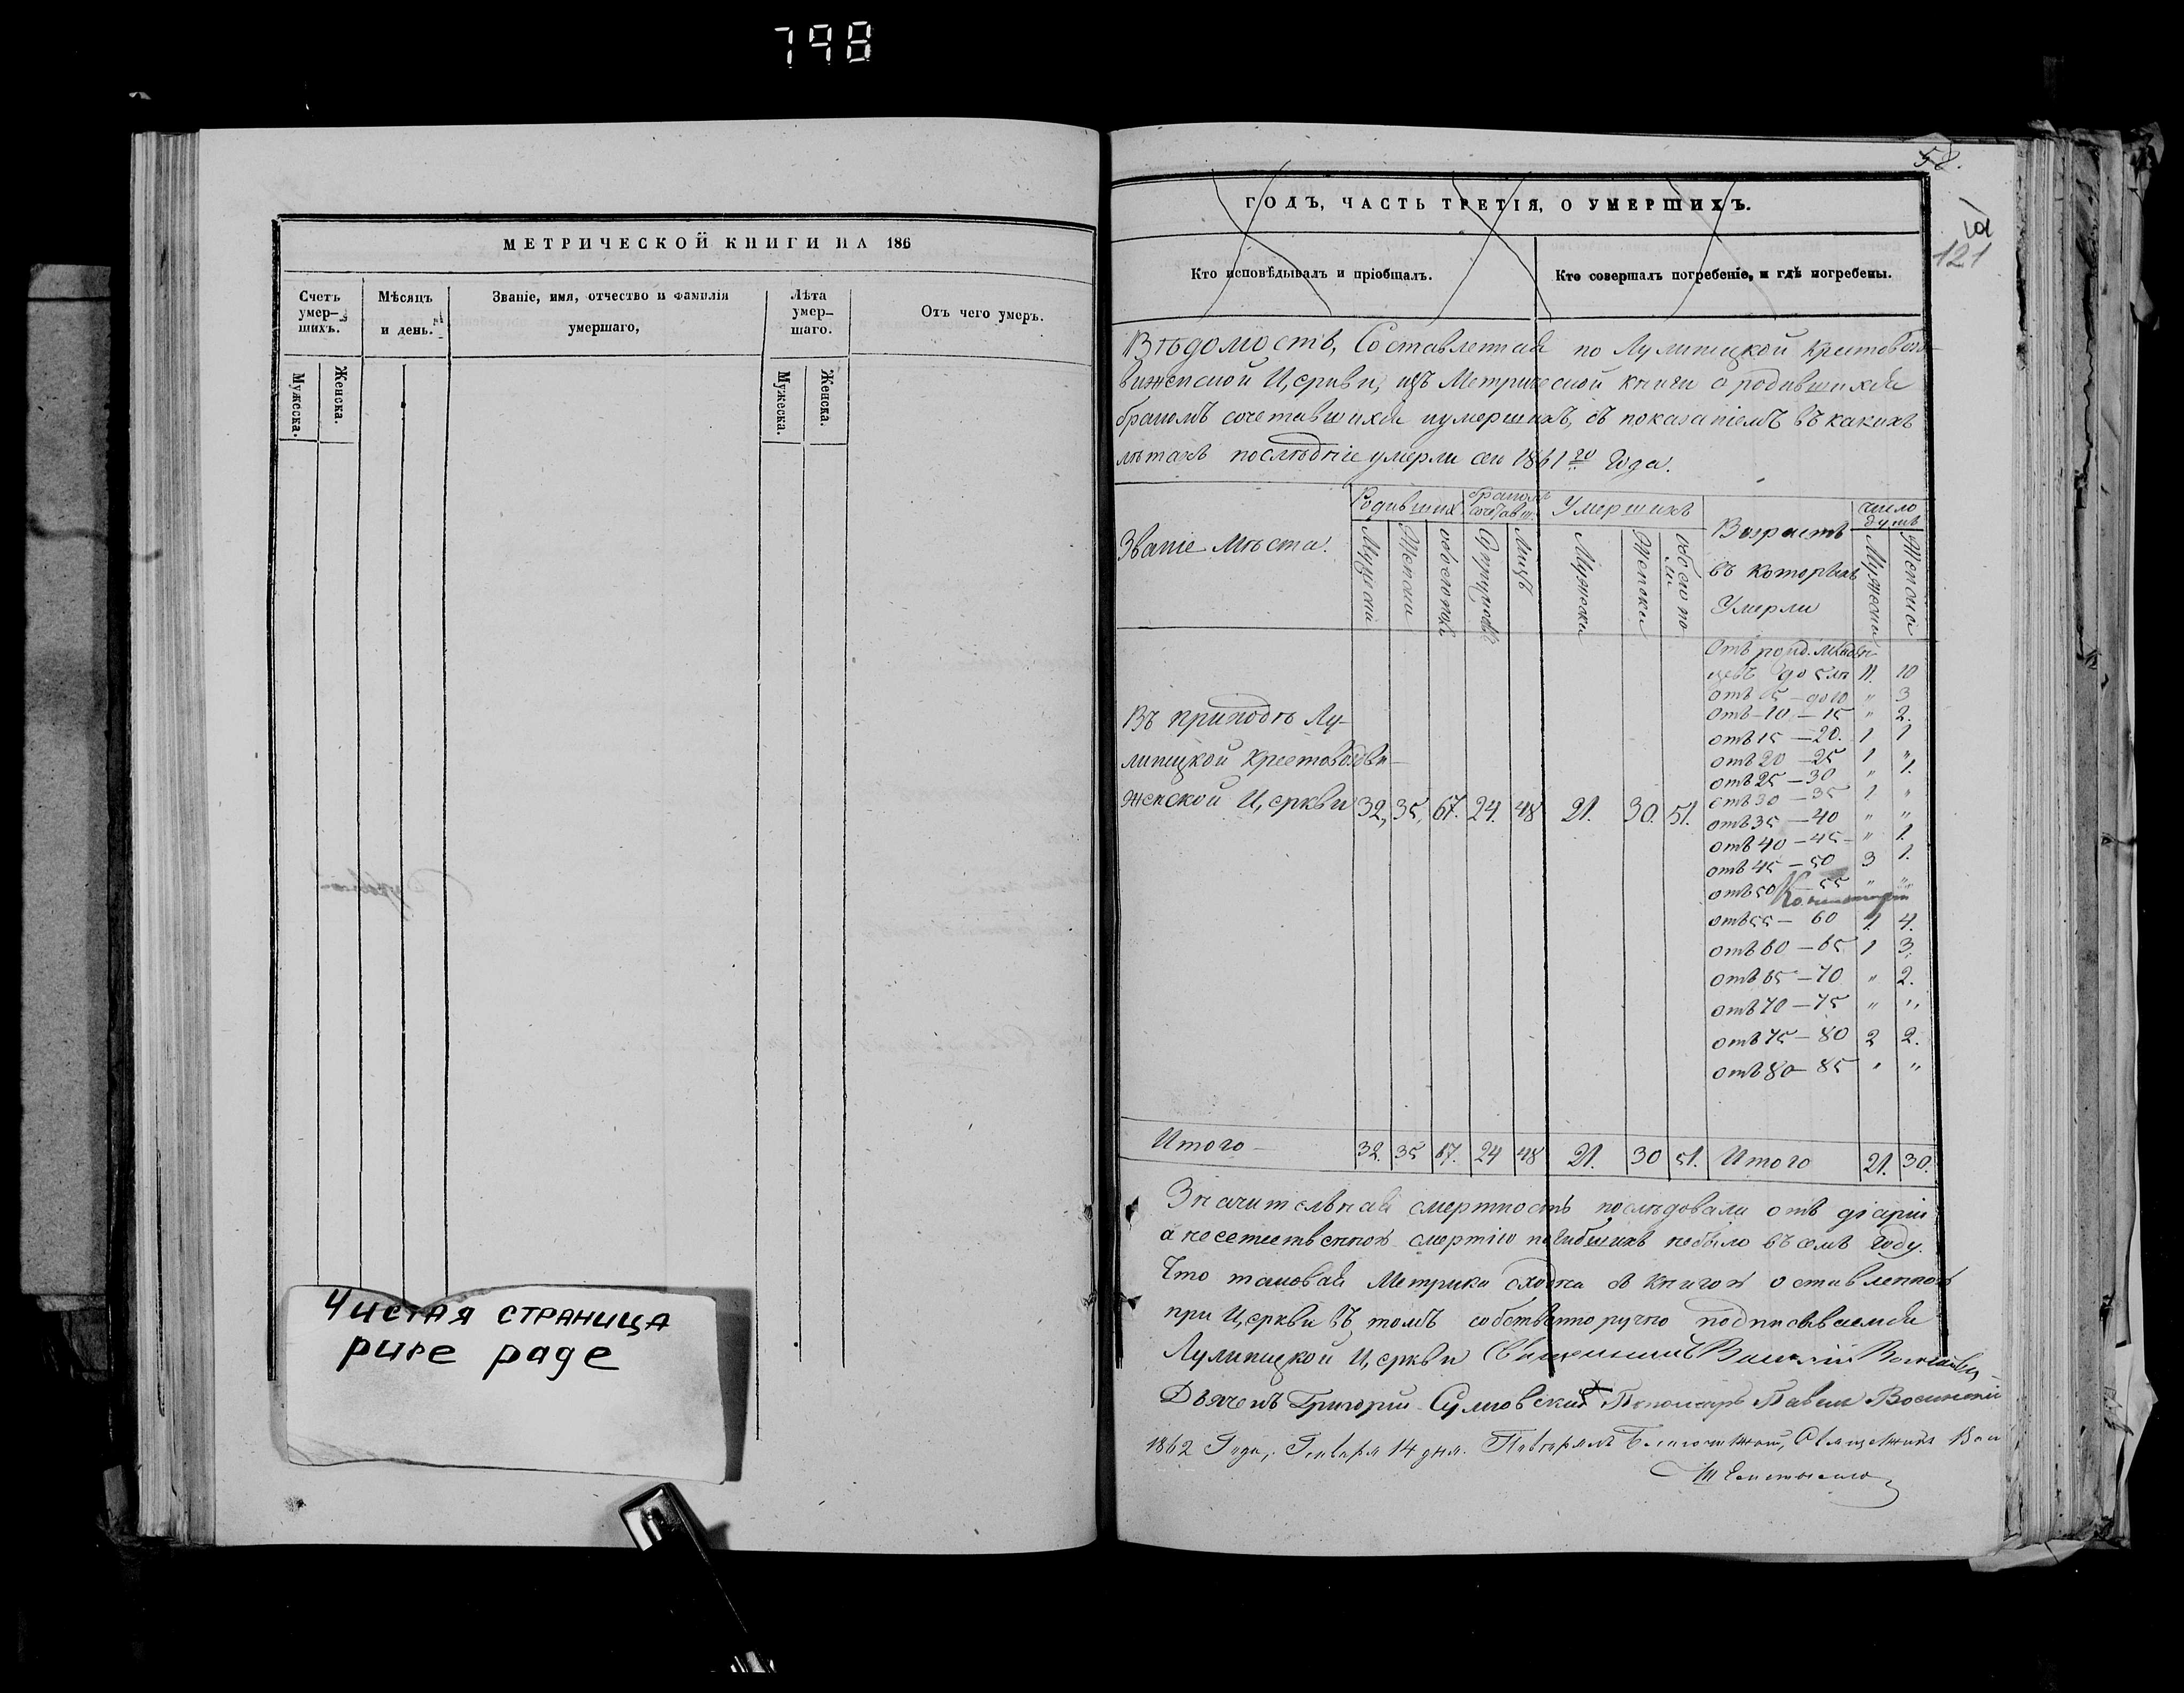 798
МЕТРИЧЕСКОЙ КНИГИ НА 186
Счетъ умер-шихъ.
Мѣсяцъ и день.
Званіе, имя, отчество и фамилія умершаго,
Лѣта умер-шаго.
Отъ чего умеръ.
Мужеска.
Женска.
Мужеска.
Женска.
Чистая страница
pure page
58.
121
ГОДЪ, ЧАСТЬ ТРЕТІЯ, О УМЕРШИХЪ.
Кто исповѣдывалъ и пріобщалъ.
Кто совершалъ погребеніе, и гдѣ погребены.
Вѣдомость, Составленная по Лулинецкой Крестовоз-
виженской Церкви, изъ Метрической книги о родившихся
бракомъ сочетавшихся и умершихъ, съ показаніемъ въ какихъ
лѣтахъ послѣдніе умерли сего 1861 го Года.
Званіе мѣста.
Родившихъ
бракомъ сочетавш.
Умершихъ
Возрастъ въ которыхъ Умерли
число душъ
Мужеска
Женска
обоего пола
Супруговъ
Лицъ
Мужеска
Женска
обоего по-ла
Мужеска
Женска
Въ приходѣ Лу-
линецкой Крестовоздви-
женской Церкви 32, 35, 67. 24. 48 21. 30. 51.
Отъ рожд. младен-
цевъ до 5 лѣ 11. 10
отъ 5 — до 10 " 3
отъ 10 — 15 " 2.
отъ 15 — 20. 1 1
отъ 20 — 25 1 "
отъ 25 — 30 " 1.
отъ 30 — 35 1 "
отъ 35 — 40 " "
отъ 40 — 45 " 1.
отъ 45 — 50 3 1.
отъ 50 — 55 " "
отъ 55 — 60 1. 4.
отъ 60 — 65 1 3.
отъ 65 — 70 " 2.
отъ 70 — 75 " "
отъ 75 — 80 2 2.
отъ 80 — 85 " "
Итого — 32. 35 67. 24 48 21. 30 51. Итого 21. 30.
Значительная смертность послѣдовали отъ діаріи
а несетественной смертію погибшихъ небыло въ семъ Году.
Что таковая Метрика сходна съ книгой оставленной
при Церкви въ томъ собственноручно подписываемся
Лулинецкой Церкви Священникъ Василій
Дьячекъ Григорій Сулковскій Пономарь Павелъ
1862 Года, Генваря 14 дня. Повѣрялъ Благочинный, Священникъ